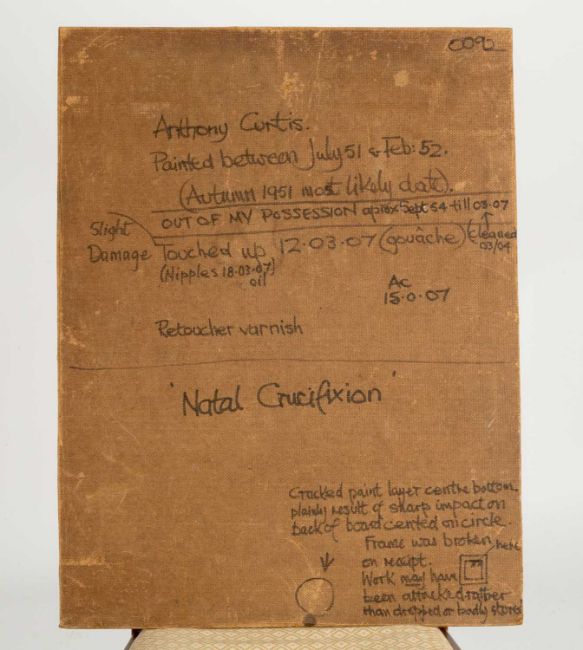 0092
Anthony Curtis.
Painted between July 51 & Feb: 52.
(Autumn 1951 most likely date).
OUT OF MY POSSESSION aprox Sept 54 till 03.07
Slight
Damage
Touched up 12.03.07 (gouâche) (Cleaned
03/04
(Nipples 18.03.07)
oil
Ac
15.0.07
Retoucher varnish
'Natal Crucifixion'
Cracked paint layer centre bottom.
plainly result of sharp impact on
back of board centred on circle.
Frame was broken here
on receipt.
Work may have
been attacked rather
than dropped or badly stored